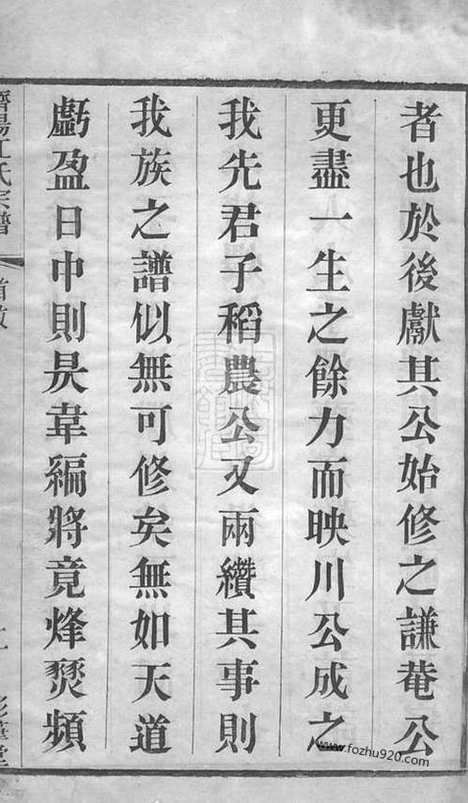 者也於後獻其公始修之謙菴公
更盡一生之餘力而映川公成之
我先君子稻農公又兩纘其事則
我族之譜似無可修矣無如天道
虧盈日中則昃韋編將竟烽燹頻
濟陽江氏宗譜
www.fozhu920.com